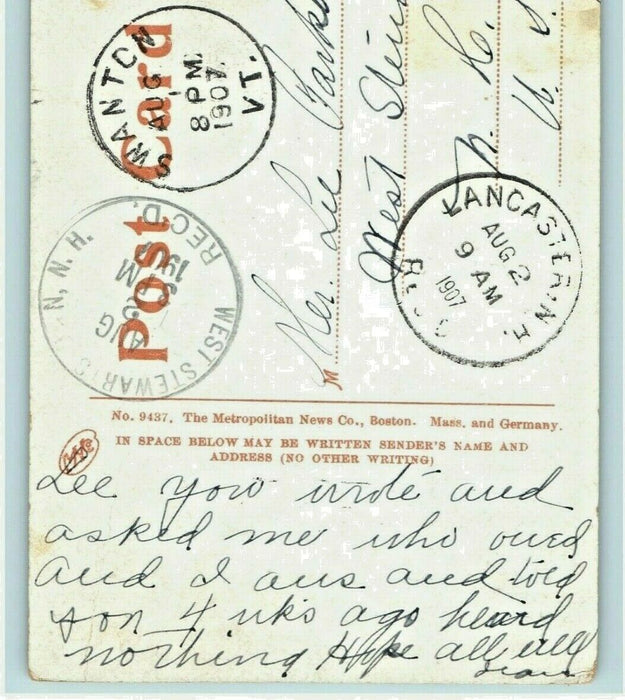 Post Card
SWANTON VT.
AUG 1
8 PM
1907
WEST STEWAR N, N.H.
AUG
PM
1907
REC'D.
LANCASTER, N.H.
AUG 2
9 AM
1907
REC'D
M Mer. Lee
West
N. H.
U. S.
No. 9437. The Metropolitan News Co., Boston. Mass. and Germany.
IN SPACE BELOW MAY BE WRITTEN SENDER'S NAME AND
ADDRESS (NO OTHER WRITING)
Lee you wrote and
asked me who oued
and I ans and told
yon 4 wks ago heard
nothing Hope all well